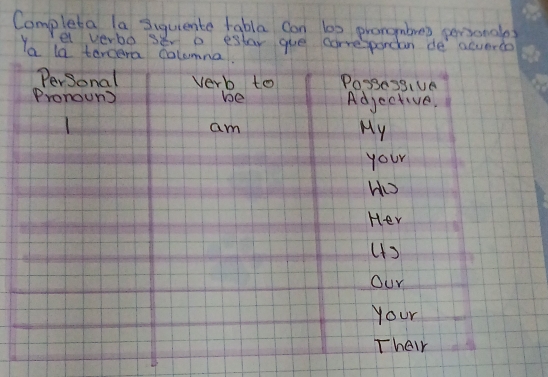 Completa la siguiente tabla con los pronombres personales
y el verbo ser o estar que correspondan de acuerdo
a la tercera columna.
Personal Pronouns	Verb to be	Possessive Adjective.
I	am	My
your
His
Her
Its
Our
Your
Their